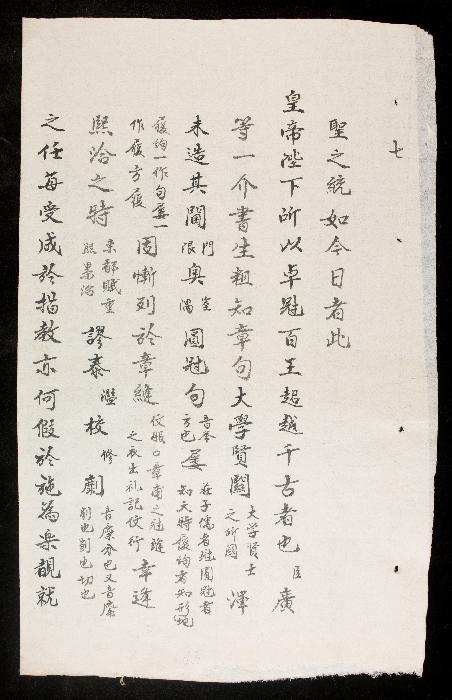 七
聖之統如今日者此
皇帝陛下所以卓冠百王超越千古者也臣廣
等一介書生粗知章句大學賢關大学賢士之所関澤
未造其閫門限奧室隅圓冠句音举方也屦莊子儒者冠圓冠者知天時履句者知形地
履句一作句屦一作履方履固慚列於章縫仪礼口章甫之冠縫之衣出礼記仪行幸逢
熙洽之時東都賦重熙累洽謬忝濫校修劘音靡亦也又音磨削也剀也切也
之任每受成於指教亦何假於施為樂覩就